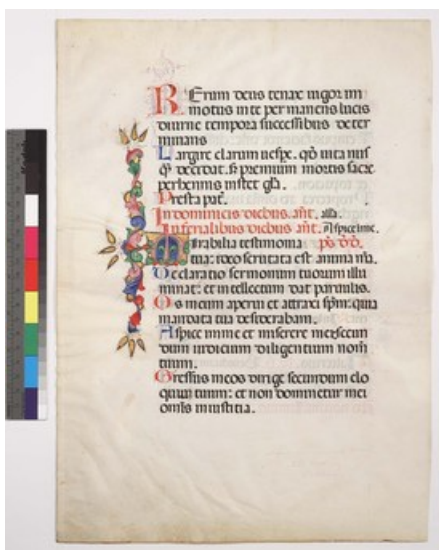 Rerum deus tenax vigor im
motus in te permanens lucis
diurne tempora successibus deter
minans
Largire clarum vespe. qͦ vita nusꝗ
decidat. sꝫ premium mortis sacre
perhennis instet gl̄a.
Presta pat̄.
In dominicis diebus an̄t. all̄a.
In ferialibus diebus an̄t. Aspice in me.
Mirabilia testimonia ps̄ dd̄.
tua: ideo scrutata est anima m̄a.
Declaratio sermonum tuorum illu
minat: et intellectum dat parvulis.
Os meum aperui et attraxi sp̄m: quia
mandata tua desiderabam.
Aspice in me et miserere mei: secun
dum iudicium diligentium nom̄
tuum.
Gressus meos dirige secundum elo
quium tuum: et non dominetur mei
omīs iniustitia.